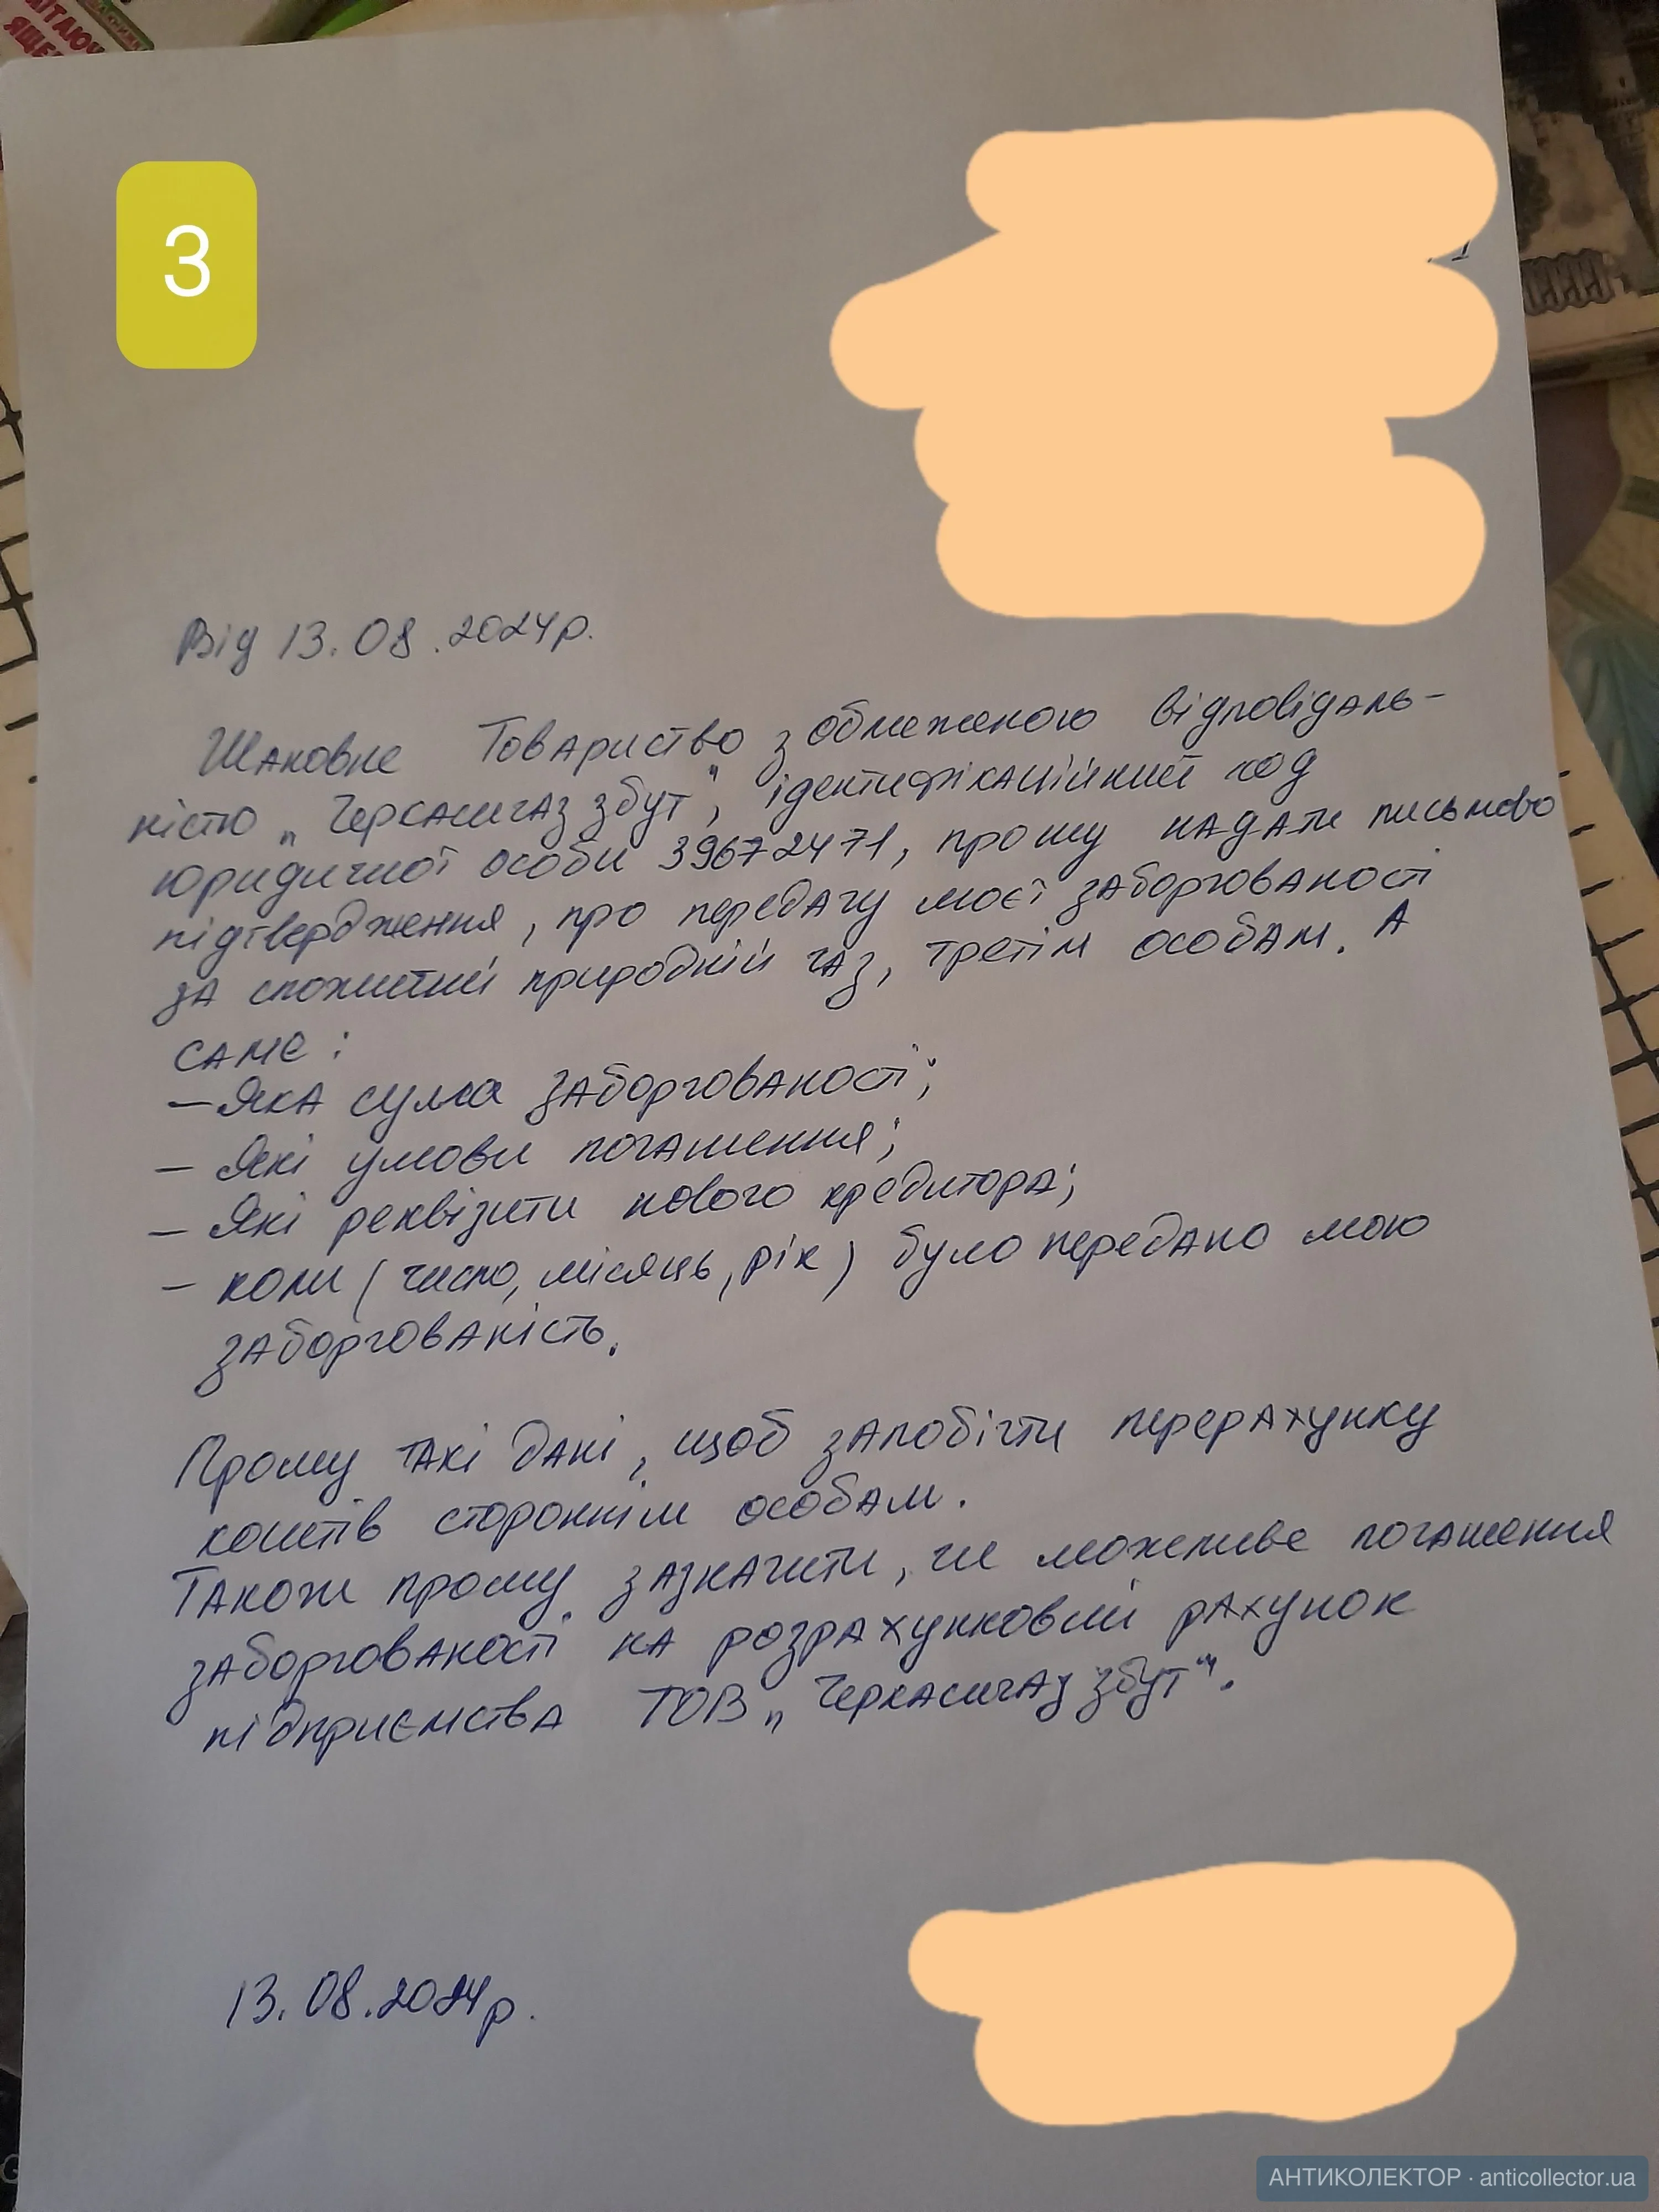 3
Від 13.08.2024р.
Шановне Товариство з обмеженою відповідаль-
ністю „Черкасигаз збут", ідентифікаційний код
юридичної особи 39672471, прошу надати письмово
підтвердження, про передачу моєї заборгованості
за спожитий природній газ, третім особам. А
саме:
— Яка сума заборгованості;
— Які умови погашення;
— Які реквізити нового кредитора;
— коли (число, місяць, рік) було передано мою
заборгованість.
Прошу такі дані, щоб запобігти перерахунку
коштів стороннім особам.
Також прошу зазначити, чи можливе погашення
заборгованості на розрахунковий рахунок
підприємства ТОВ „Черкасигаз збут".
13.08.2024р.
АНТИКОЛЕКТОР · anticollector.ua